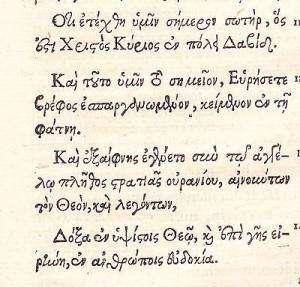 Ὅτι ἐτέχθη ὑμῖν σήμερον σωτὴρ, ὅς
ἐστι Χριστὸς Κύριος ἐν πόλει Δαβίδ.
Καὶ τοῦτο ὑμῖν τὸ σημεῖον, Εὑρήσετε
βρέφος ἐσπαργανωμένον, κείμενον ἐν τῇ
φάτνῃ.
Καὶ ἐξαίφνης ἐγένετο σὺν τῷ ἀγγέ-
λῳ πλῆθος στρατιᾶς οὐρανίου, αἰνούντων
τὸν Θεὸν, καὶ λεγόντων,
Δόξα ἐν ὑψίστοις Θεῷ, καὶ ἐπὶ γῆς εἰ-
ρήνη, ἐν ἀνθρώποις εὐδοκία.